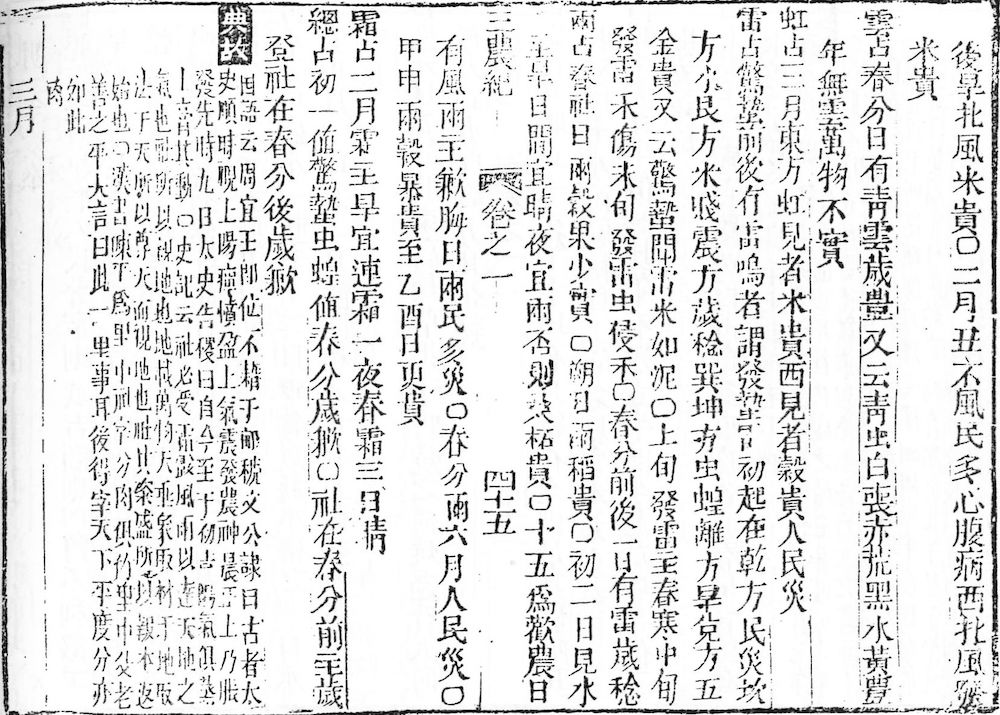 後旱北風米貴〇二月丑不風民多心腹病西北風
米貴
雲占春分日有靑雲歲豊又云靑虫白喪赤荒黑水黃豐
年無雲萬物不實
虹占二月東方虹見者米貴西見者穀貴人民災
雷占驚蟄前後有雷鳴者謂發蟄雷初起在乾方民災坎
方水艮方米賤震方歲稔巽坤方虫蝗離方旱兌方五
金貴又云驚蟄聞雷米如泥〇上旬發雷主春寒中旬
發雷禾傷末旬發雷虫侵禾〇春分前後一日有雷歲稔
雨占春社日雨穀果少實〇朔日雨稻貴〇初二日見水
主旱日間宜晴夜宜雨否則桑柘貴〇十五爲歡農日
三農紀 卷之一 四十五
有風雨主歉晦日雨民多災〇春分雨六月人民災〇
甲申雨穀暴貴至乙酉日更貴
霜占二月霜主旱宜連霜一夜春霜三日晴
總占初一値驚蟄虫蝗値春分歲歉〇社在春分前主歲
登社在春分後歲歉
典故 國語云周宣王卽位不藉于畝虢文公諫曰古者太
史順時覛土陽癉憤盈土氣震發農神晨正土乃脈
發先時九日太史告稷曰自今至于初吉陽氣俱蒸
土膏其動〇史記云社必受霜露風雨以達天地之
氣也社所以親地也地載萬物天垂象取材于地取
法于天所以尊天而親地也社共粢盛所以報本返
始也〇漢書陳平爲里中社宰分肉俱均里中父老
善之平大言曰此一里事耳後得宰天下平度分亦
如此
肉
三月